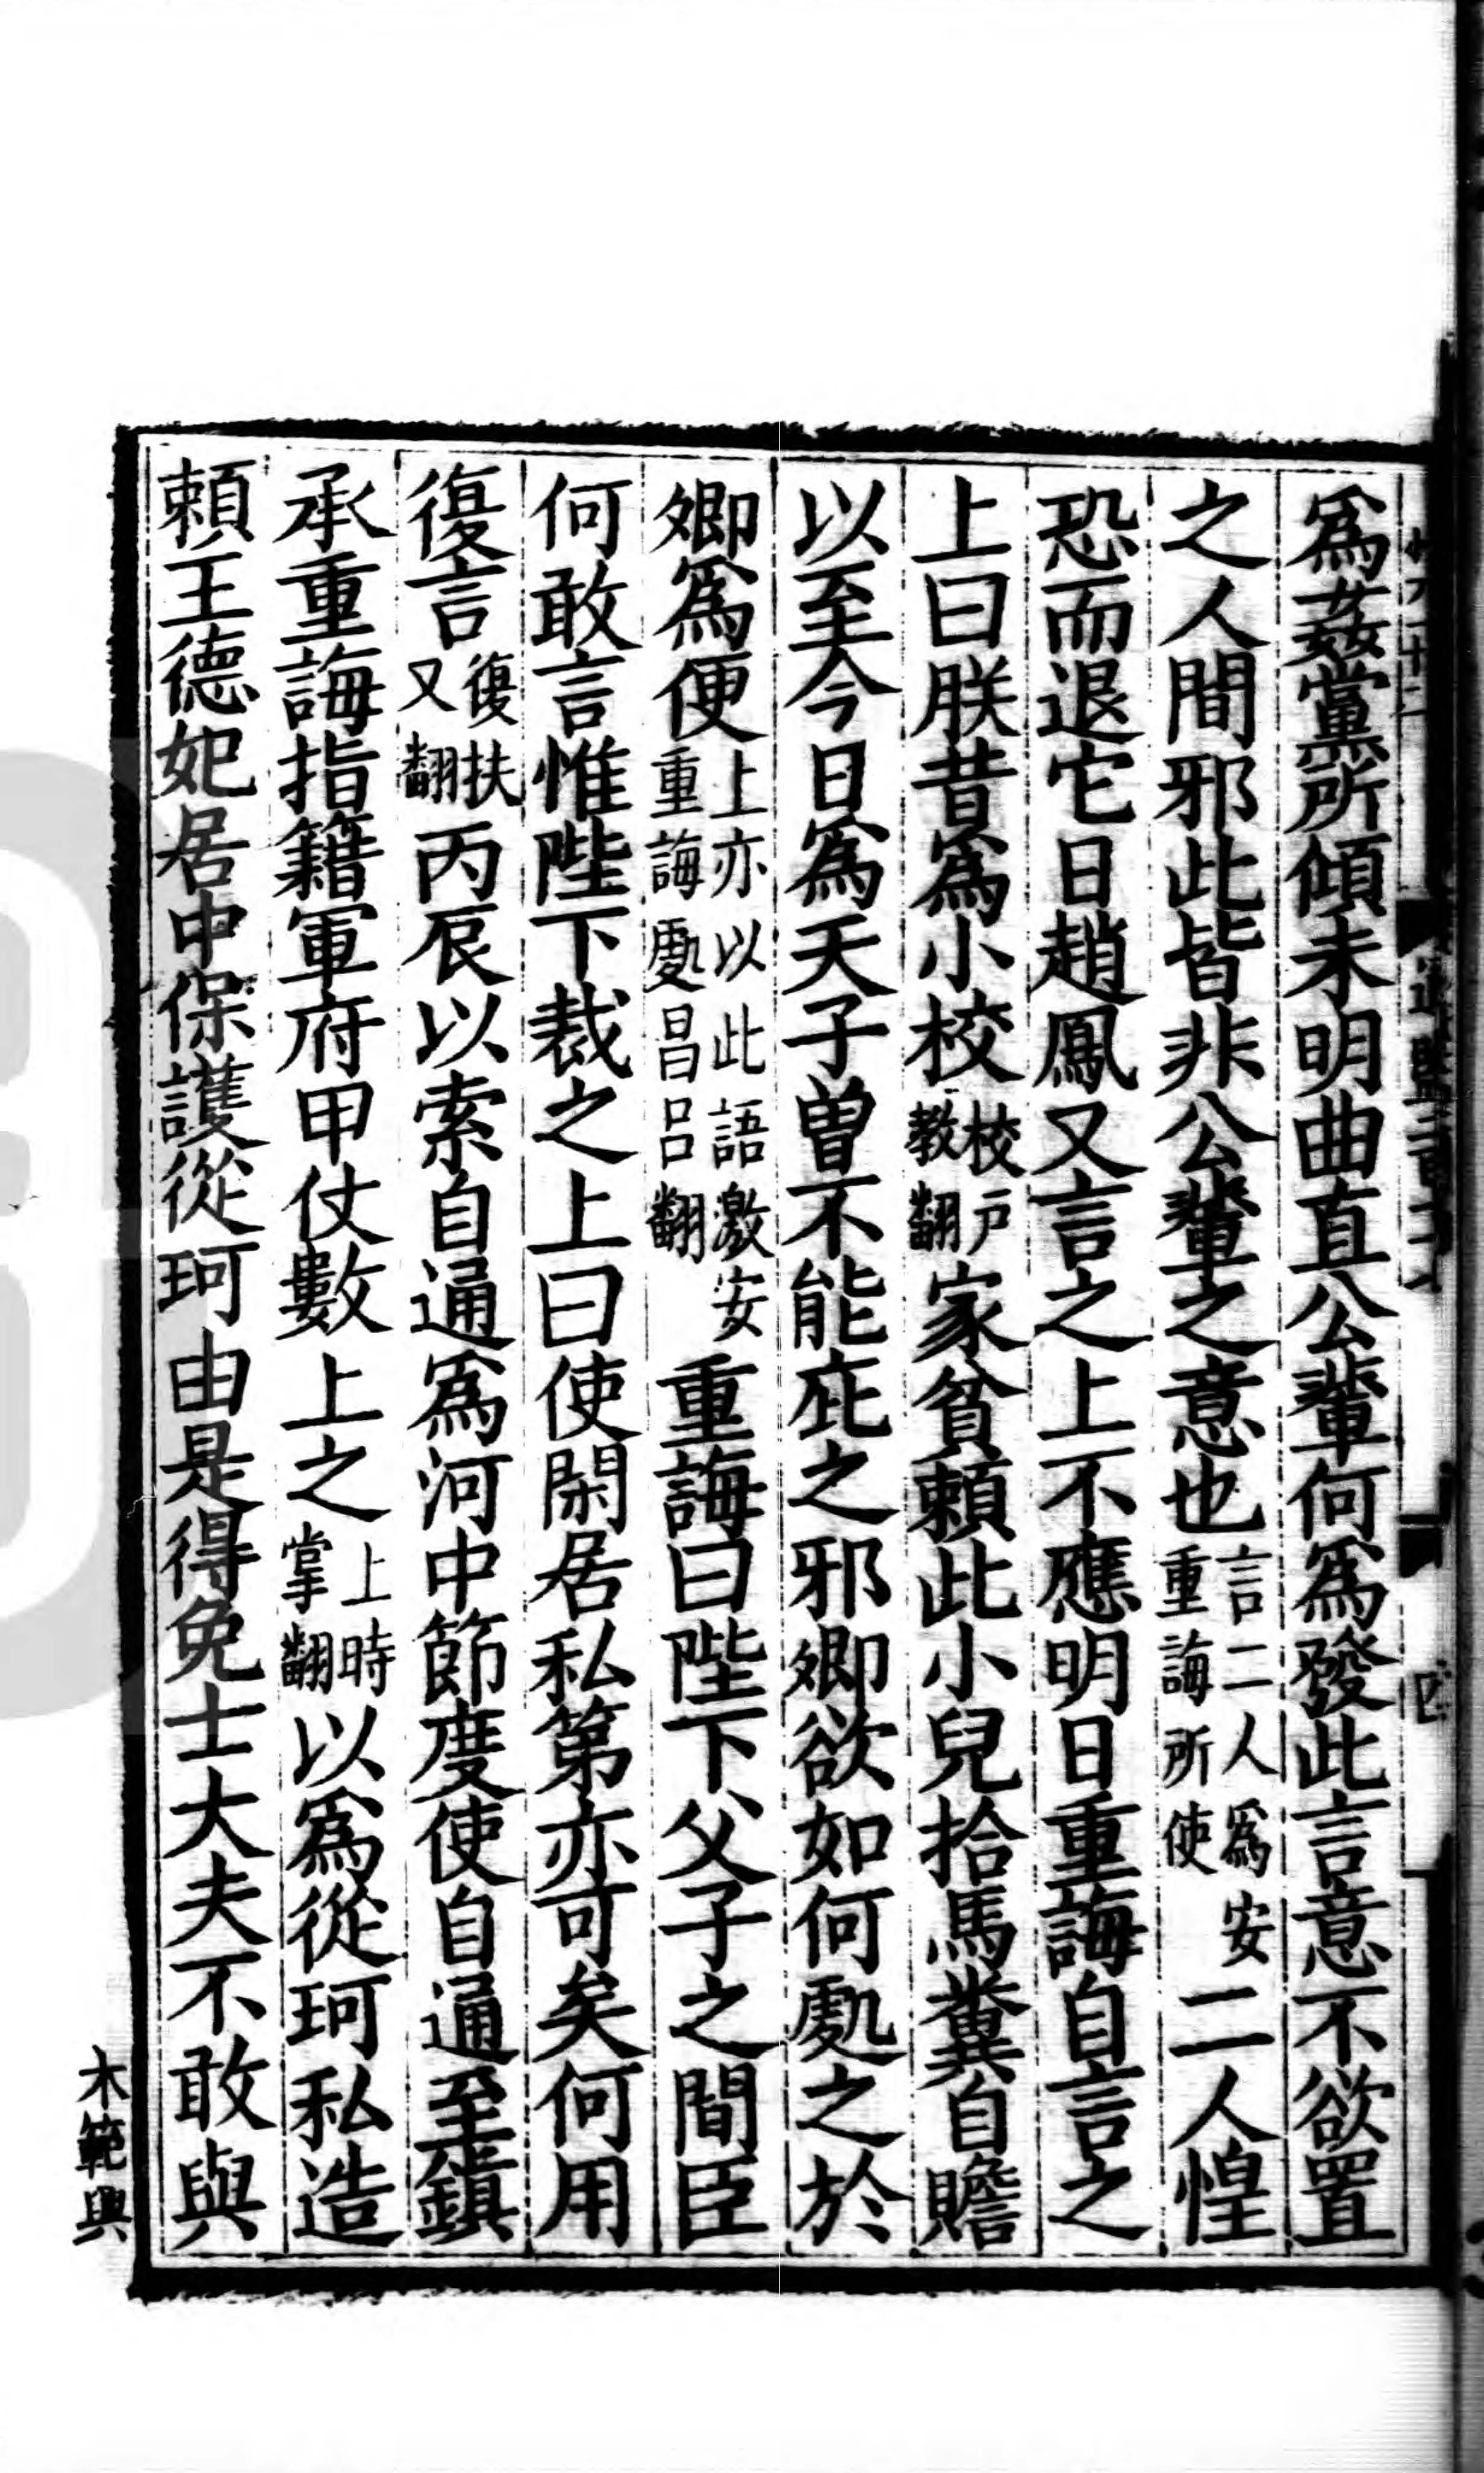 爲姦黨所傾未明曲直公輩何爲發此言意不欲置
之人間邪此皆非公輩之意也言二人爲安重誨所使二人惶
恐而退它日趙鳳又言之上不應明日重誨自言之
上曰朕昔爲小校校戶教翻家貧賴此小兒拾馬糞自贍
以至今日爲天子曾不能庇之邪卿欲如何處之於
卿爲便上亦以此語激安重誨處昌呂翻重誨曰陛下父子之間臣
何敢言惟陛下裁之上曰使閑居私第亦可矣何用
復言復扶又翻丙辰以索自通爲河中節度使自通至鎮
承重誨指籍軍府甲仗數上之上時掌翻以爲從珂私造
賴王德妃居中保護從珂由是得免士大夫不敢與